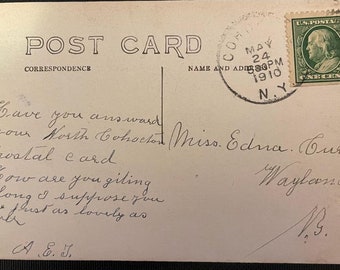 POST CARD
CORRESPONDENCE
NAME AND ADDRESS
CO
MAY
24
530PM
1910
N.Y.
U.S. POSTAGE
ONE CENT
Have you answard
your North Cohocton
postal card
How are you giting
long I suppose you
just as lovely as
A. E. T.
Miss. Edna. Cur
Waylan
N.